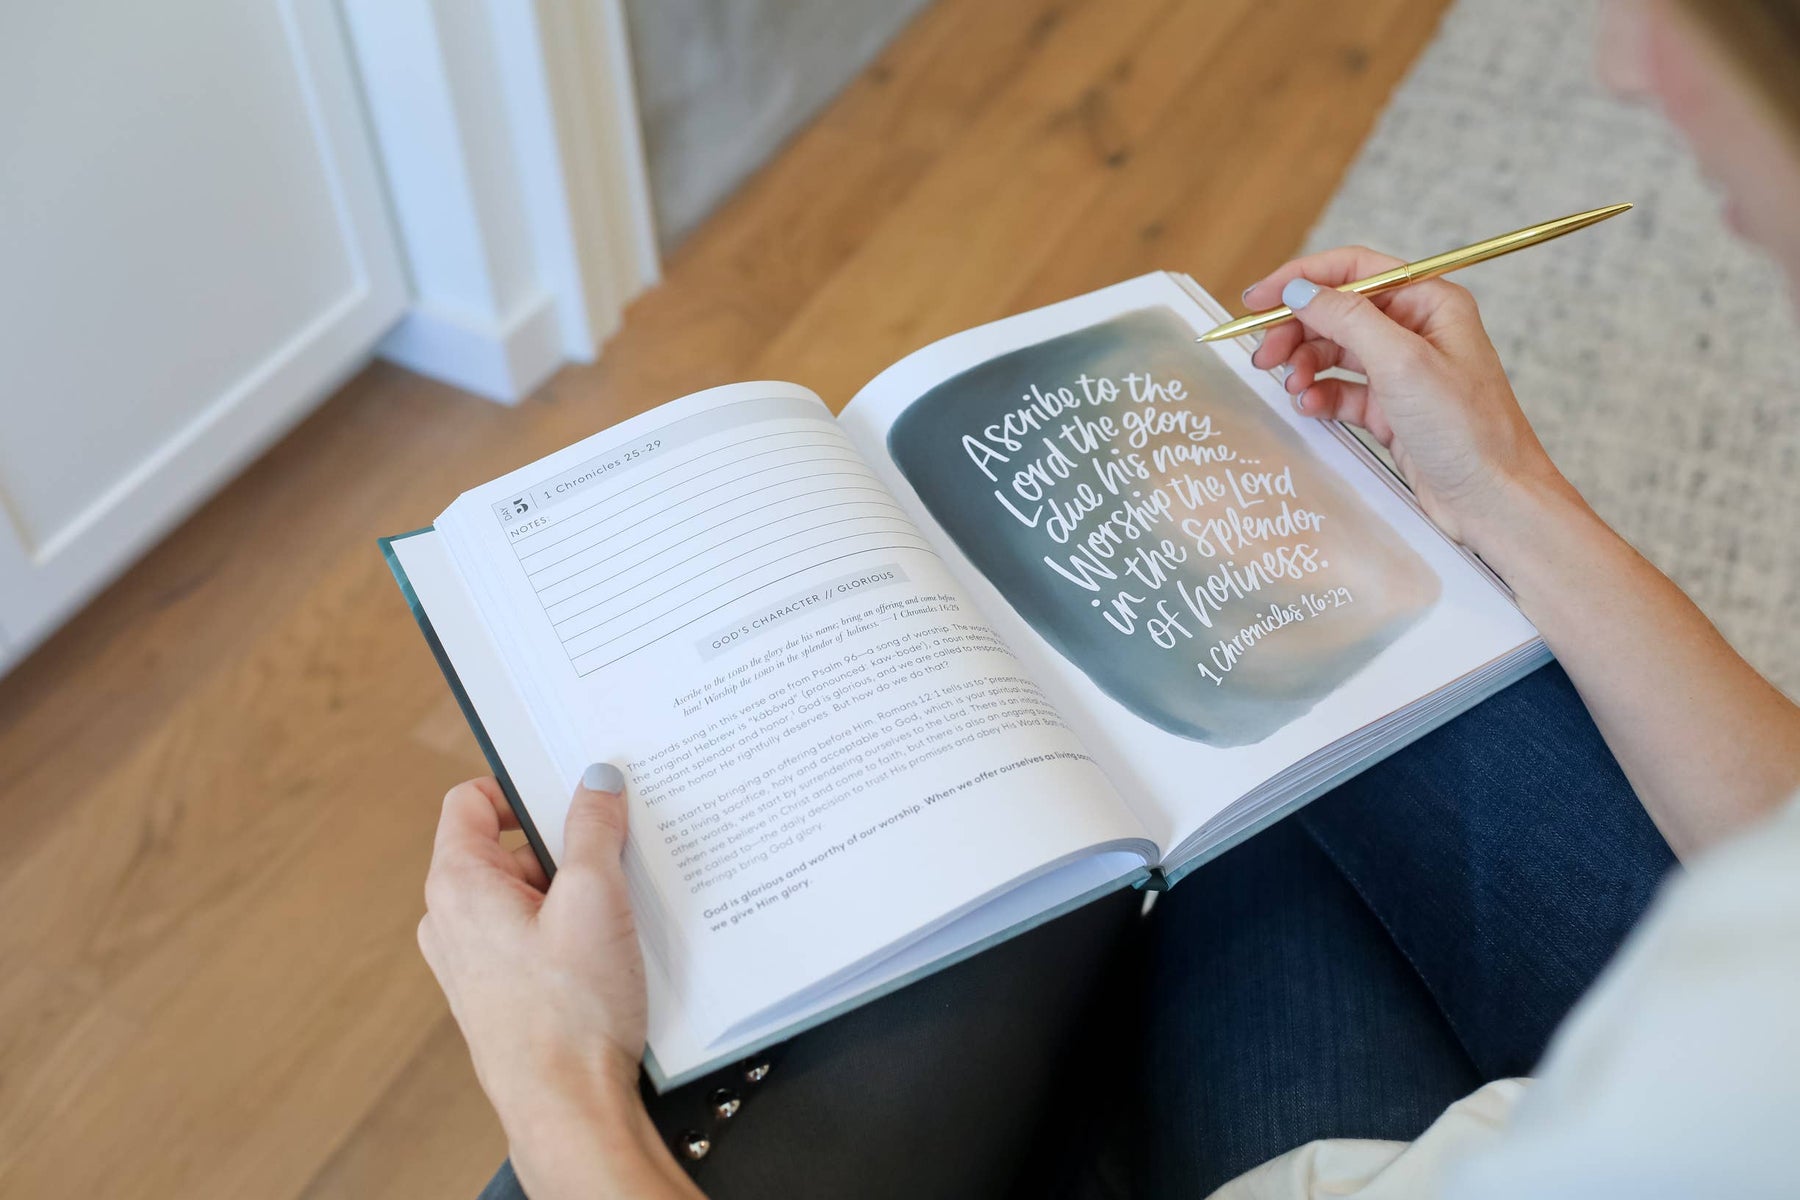 DAY 5 | 1 Chronicles 25-29
NOTES:
GOD'S CHARACTER // GLORIOUS
Ascribe to the LORD the glory due his name; bring an offering and come before
him! Worship the LORD in the splendor of holiness. —1 Chronicles 16:29
The words sung in this verse are from Psalm 96—a song of worship. The word
the original Hebrew is "kâbôwd" (pronounced: kaw-bode'), a noun referring
abundant splendor and honor.' God is glorious, and we are called to respond
Him the honor He rightfully deserves. But how do we do that?
We start by bringing an offering before Him. Romans 12:1 tells us to "present
as a living sacrifice, holy and acceptable to God, which is your spiritual
other words, we start by surrendering ourselves to the Lord. There is an initial
when we believe in Christ and come to faith, but there is also an ongoing
are called to—the daily decision to trust His promises and obey His Word. Both
offerings bring God glory.
God is glorious and worthy of our worship. When we offer ourselves as living
we give Him glory.
Ascribe to the
Lord the glory
due his name...
Worship the Lord
in the splendor
of holiness.
1 Chronicles 16:29